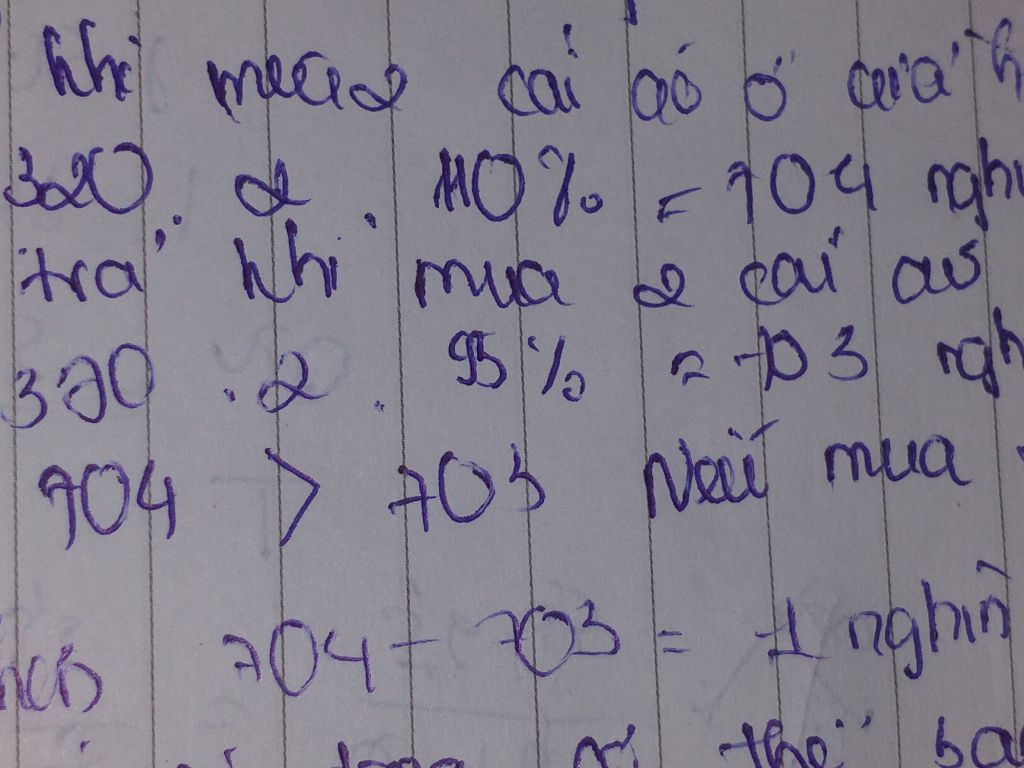 khi mua 2 cái áo ở giá h
320 . 2 . 110% = 704 nghì
trả khi mua 2 cái áo
370 . 2 . 95% = 703 ngh
704 > 703 Nếu mua
704 - 703 = 1 nghìn
thể bá